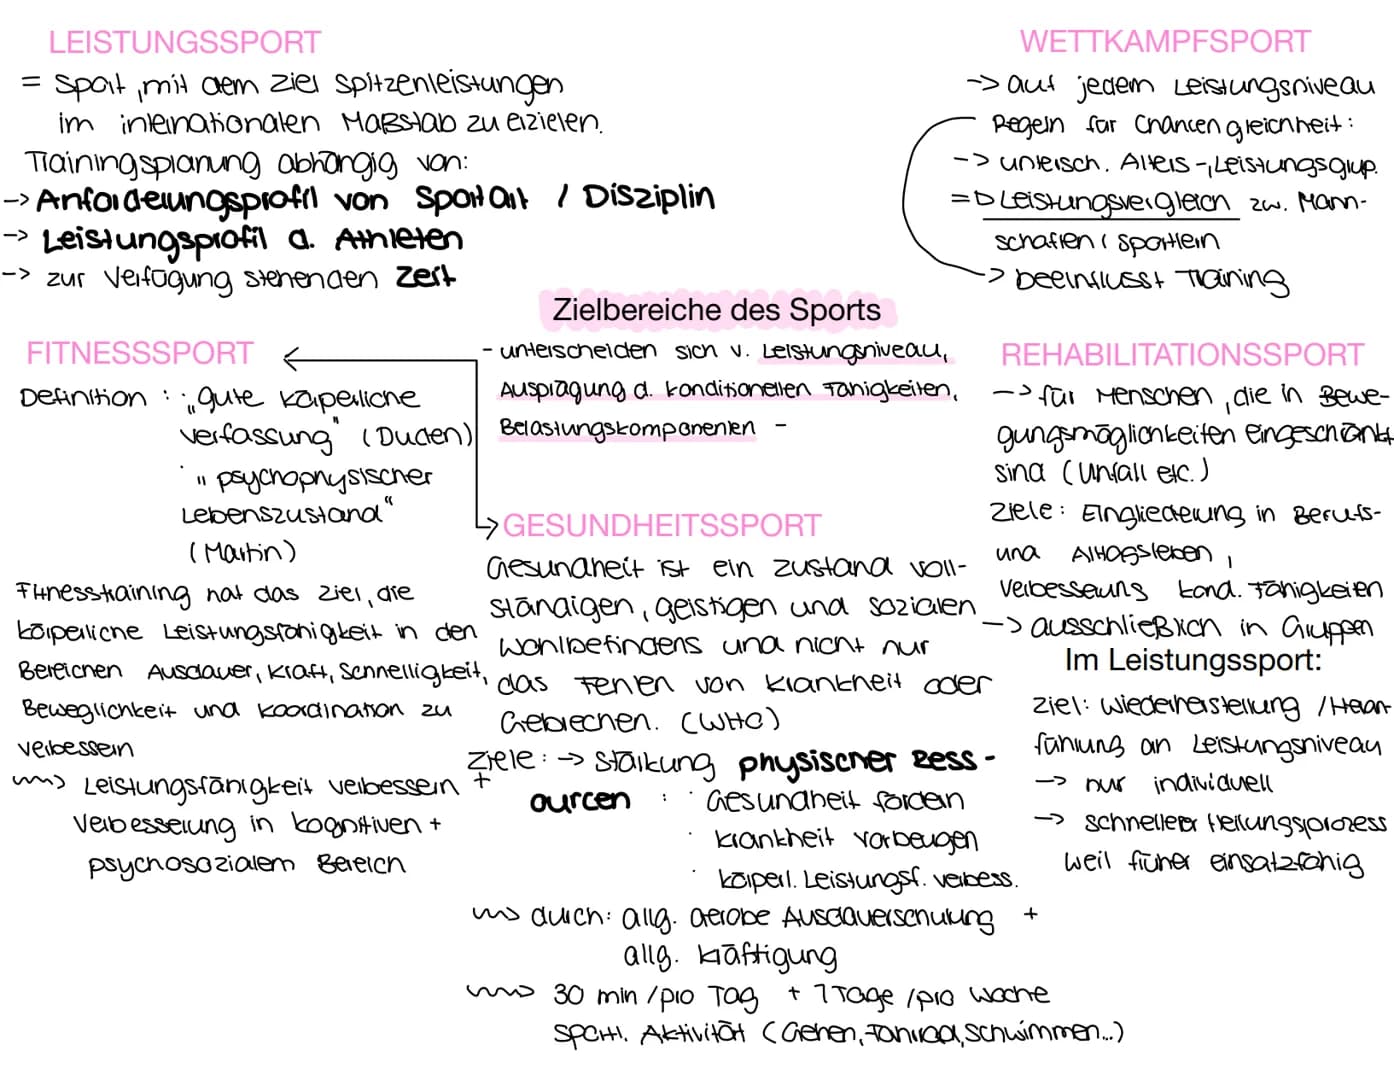 LEISTUNGSSPORT
= Sport, mit dem Ziel Spitzenleistungen
im internationalen Maßstab zu erzielen.
Trainingsplanung abhängig von:
-> Anforderungsprofil von Sportart / Disziplin
-> Leistungsprofil d. Athleten
-> zur Verfügung stehenden Zeit
WETTKAMPFSPORT
-> auf jedem Leistungsniveau
Regeln für Chancengleichheit:
-> untersch. Alters-, Leistungsgrup.
=D Leistungsvergleich zw. Mann-
schaften / Sportlern
-> beeinflusst Training
Zielbereiche des Sports
- unterscheiden sich v. Leistungsniveau,
Ausprägung d. konditionellen Fähigkeiten,
Belastungskomponenten -
FITNESSSPORT
Definition : · „gute körperliche
Verfassung" (Duden)
· „psychophysischer
Lebenszustand"
(Martin)
Fitnesstraining hat das Ziel, die
körperliche Leistungsfähigkeit in den
Bereichen Ausdauer, Kraft, Schnelligkeit,
Beweglichkeit und Koordination zu
verbessern
~> Leistungsfähigkeit verbessern +
Verbesserung in kognitiven +
psychosozialem Bereich
GESUNDHEITSSPORT
Gesundheit ist ein Zustand voll-
ständigen, geistigen und sozialen
Wohlbefindens und nicht nur
das Fehlen von Krankheit oder
Gebrechen. (WHO)
Ziele: -> Stärkung physischer Ress-
ourcen : · Gesundheit fördern
· Krankheit vorbeugen
· körperl. Leistungsf. verbess.
~> durch: allg. aerobe Ausdauerschulung +
allg. Kräftigung
~> 30 min /pro Tag + 7 Tage /pro Woche
sportl. Aktivität (Gehen, Fahrrad, Schwimmen...)
REHABILITATIONSSPORT
-> für Menschen, die in Bewe-
gungsmöglichkeiten eingeschränkt
sind (Unfall etc.)
Ziele: Eingliederung in Berufs-
und Alltagsleben,
Verbesserung kond. Fähigkeiten
-> ausschließlich in Gruppen
Im Leistungssport:
Ziel: Wiederherstellung / Heran
führung an Leistungsniveau
-> nur individuell
-> schneller Heilungsprozess
weil früher einsatzfähig